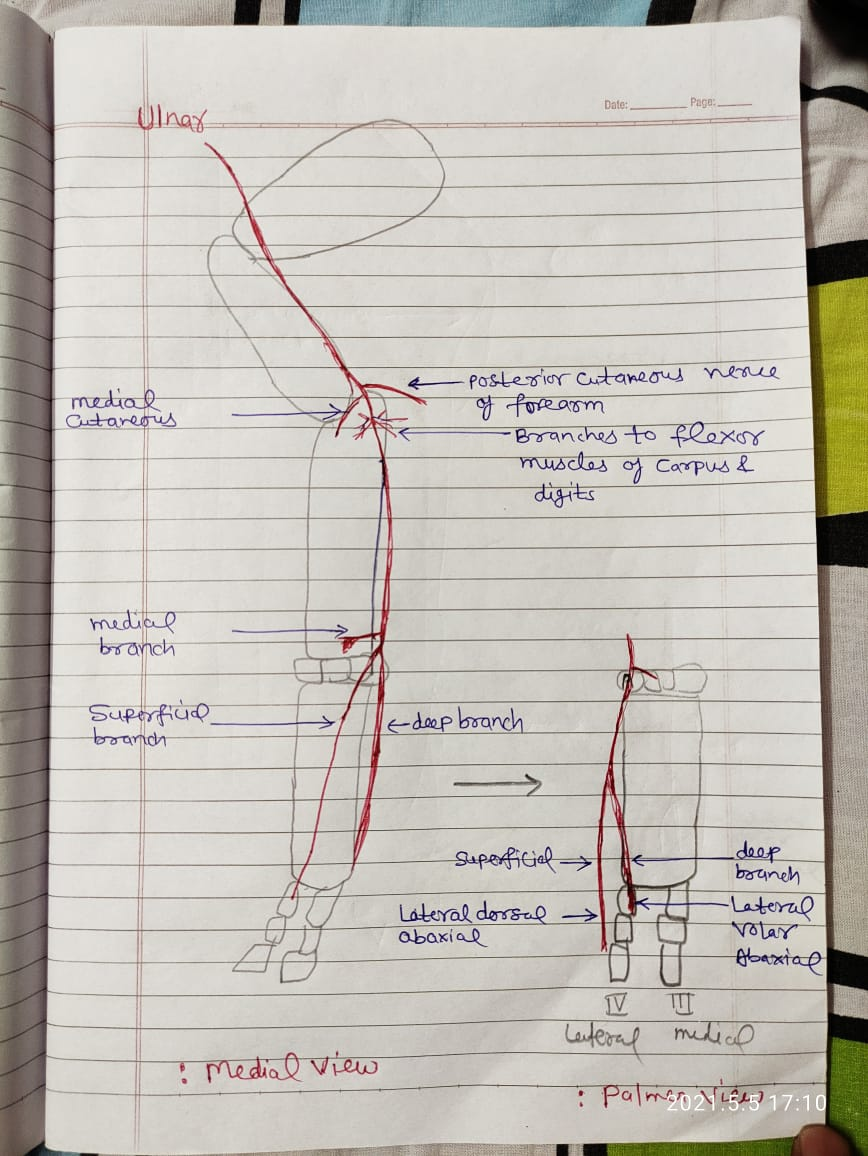 Date: Page:
Ulnar
Posterior Cutaneous nerve
of forearm
medial
Cutaneous
Branches to flexor
muscles of Carpus &
digits
medial
branch
Superficial
branch
deep branch
Superficial
deep
branch
Lateral dorsal
abaxial
Lateral
Volar
Abaxial
IV III
Lateral medial
: Medial View
: Palmer View
2021.5.5 17:10